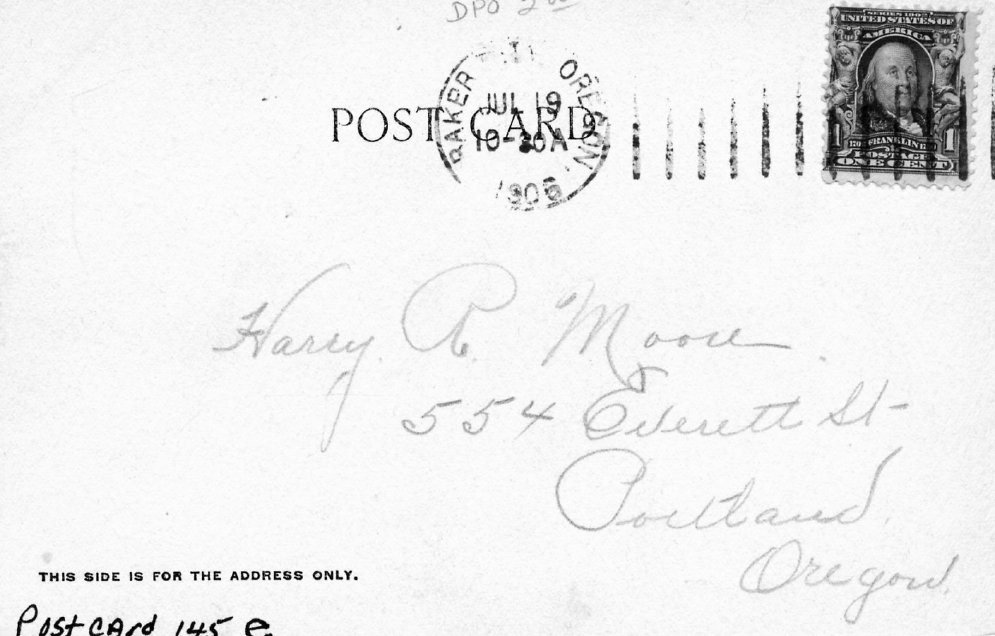 DPO 2 00
SERIES 1902
UNITED STATES OF
AMERICA
1 FRANKLIN 1
POSTAGE
ONE CENT
BAKER CITY OREGON.
JUL 19
10-30A
1905
POST CARD
Harry R. Moore
554 Everett St
Portland.
Oregon.
THIS SIDE IS FOR THE ADDRESS ONLY.
Postcard 145 e